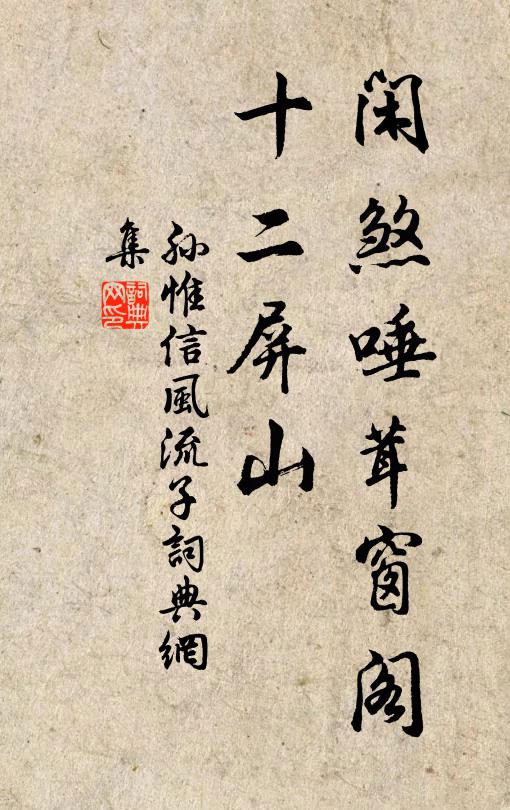 閑煞唾茸窗閣
十二屏山
孙惟信風流子詞典網
集
詞典
网印